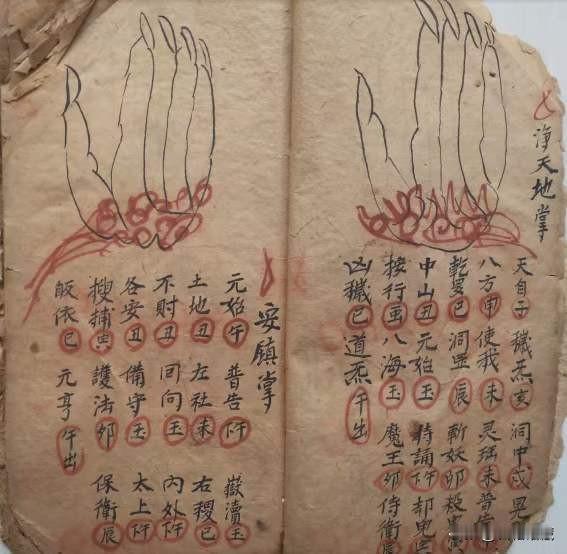 净天地掌
天自子 穢炁亥 洞中戌 晃
八方申 使我未 灵 未 普告
乾 巳 洞罡辰 斬妖卯 殺
中山丑 元始玉 持誦仵 却鬼
接行玉 八海玉 魔王卯 侍衛
凶穢巳 道炁午出
安鎮掌
元始午 普告仵 嶽瀆玉
土地丑 左社未 右稷巳
不財丑 回向玉 內外仵
各安丑 備守玉 太上仵
搜 護法卯 保衛辰
皈依巳 元亨午出